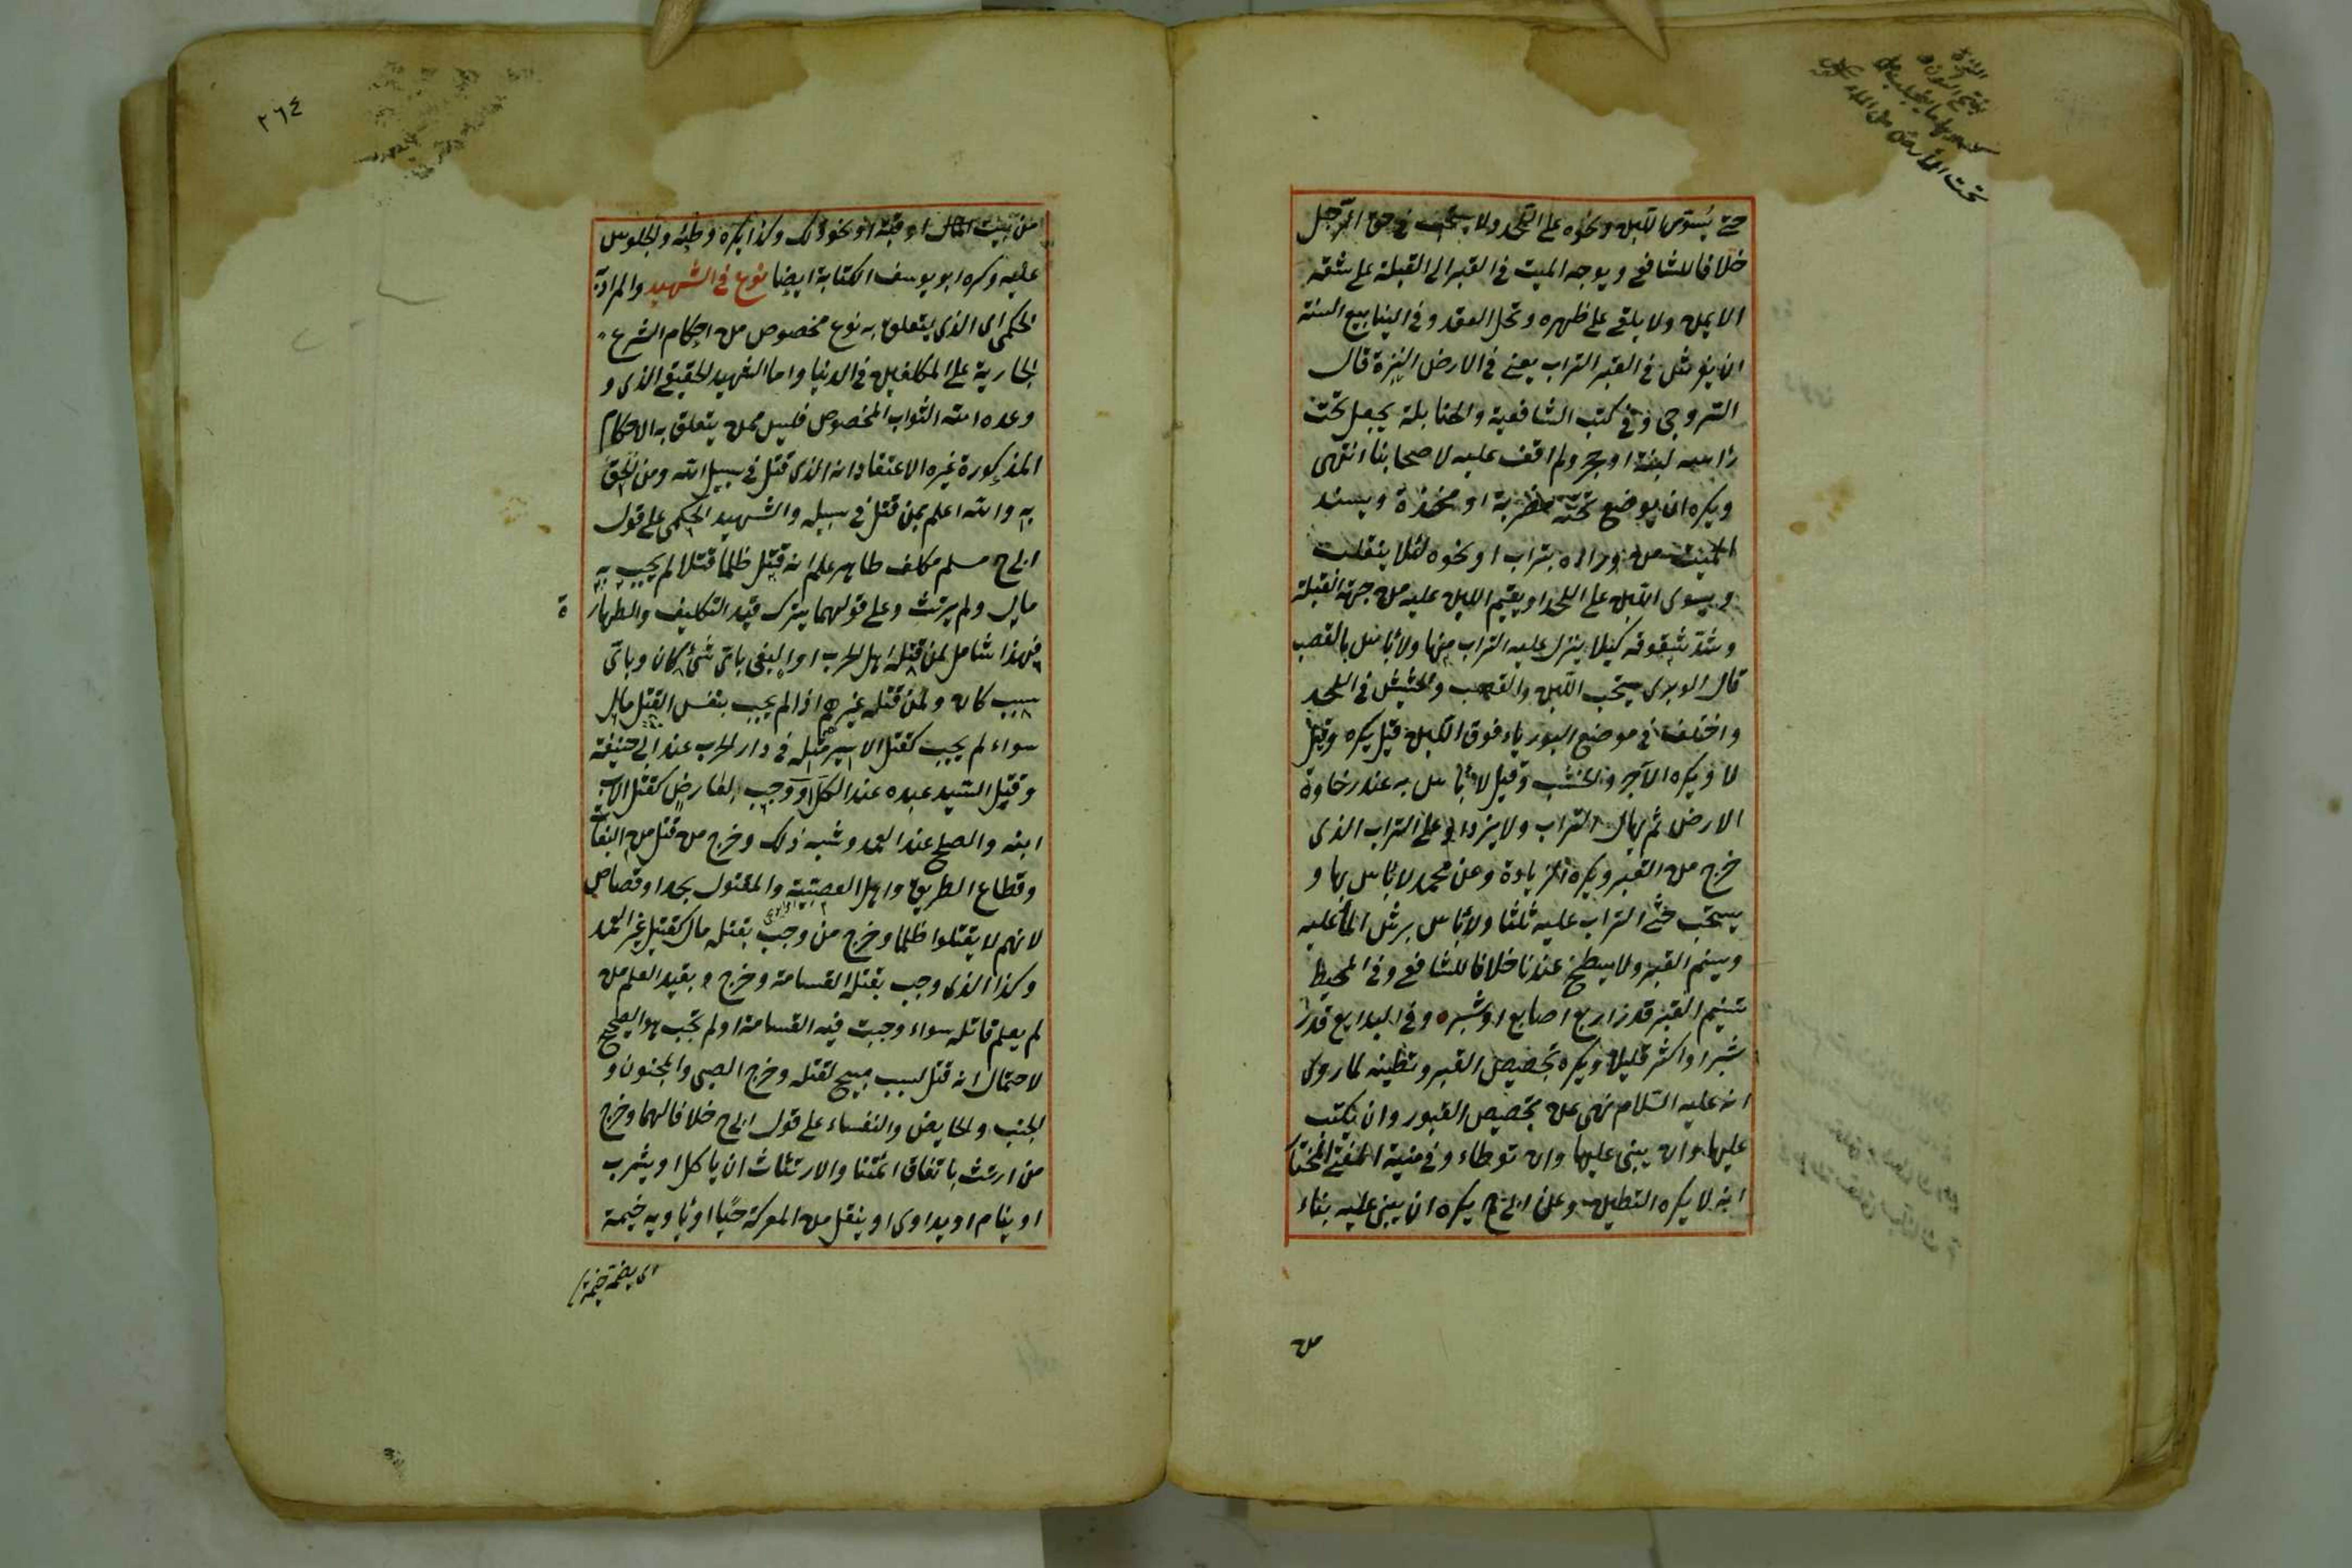 حتى يستوى اللبن ونحوه على اللحد ولا يستحب فى حق الرجل
خلافا للشافعى ويوجه الميت فى القبر الى القبلة على شقه
الايمن ولا يلقى على ظهره وتحل العقد وفى الينابيع السنة
ان يفرش فى القبر التراب يعنى فى الارض النزة قال
السروجى وفى كتب الشافعية والحنابلة يجعل تحت
رأسه لبنة او حجر ولم اقف عليه لاصحابنا انتهى
ويكره ان يوضع تحته مضربة او مخدة ويسند
الميت من ورائه بتراب او نحوه لئلا ينقلب
ويسوى اللبن على اللحد او يقيم اللبن عليه من جهة القبلة
وشد شقوقه كيلا ينزل عليه التراب منها ولا بأس بالقصب
قال الوبرى يستحب اللبن والقصب والحشيش فى اللحد
واختلف فى موضع البورياء فوق اللبن قيل يكره وقيل
لا ويكره الآجر والخشب وقيل لا بأس به عند رخاوة
الارض ثم يهال التراب ولا يزداد على التراب الذى
خرج من القبر ويكره الزيادة وعن محمد لا بأس بها و
يستحب حثى التراب عليه ثلثا ولا بأس برش الماء عليه
ويسنم القبر ولا يسطح عندنا خلافا للشافعى وفى المحيط
تسنيم القبر قدر اربع اصابع او شبر وفى البدايع قدر
شبر او اكثر قليلا ويكره تجصيص القبر وتطيينه لما روى
انه عليه السلام نهى عن تجصيص القبور وان يكتب
عليها وان يبنى عليها وان توطاء وفى منية المفتى المختار
انه لا يكره التطيين وعن ابى ح يكره ان يبنى عليه بناء
من
تحت الارض من الماء
٢٦٤
من بيت او قبة او نحو ذلك وكذا يكره وطئه والجلوس
عليه وكره ابو يوسف الكتابة ايضا نوع فى الشهيد والمراد به
الحكمى اى الذى يتعلق به نوع مخصوص من احكام الشرع
الجارية على المكلفين فى الدنيا واما الشهيد الحقيقى الذى و
وعده الله الثواب المخصوص فليس ممن يتعلق به الاحكام
المذكورة غيره الاعتقاد انه الذى قتل فى سبيل الله ومن الحق
به والله اعلم بمن قتل فى سبيله والشهيد الحكمى على قول
ابى ح مسلم مكلف طاهر علم انه قتل ظلما قتلا لم يجب به
مال ولم يرتث وعلى قولهما يترك قيد التكليف والطهارة
فهذا شامل لمن قتله اهل الحرب او البغى باى شئ كان وباى
سبب كان ولمن قتله غيرهم اذا لم يجب بنفس القتل مال
سواء لم يجب كقتل الاسير مثله فى دار الحرب عند ابى حنيفة
وقتل السيد عبده عند الكل او وجب لعارض كقتل الاب
ابنه والصلح عند العمد وشبه ذلك وخرج من قتل من البغاة
وقطاع الطريق واهل العصبية والمقتول بحد او قصاص
لانهم لا يقتلوا ظلما وخرج من وجب بقتله مال كقتيل غير العمد
وكذا الذى وجب بقتله القسامة وخرج وبقيد العلم من
لم يعلم قاتله سواء وجبت فيه القسامة او لم تجب هو الصحيح
لاحتمال انه قتل لسبب مبيح لقتله وخرج الصبى والمجنون و
الجنب والحايض والنفساء على قول ابى ح خلافا لهما وخرج
من ارتث باتفاق ائمتنا والارتثاث ان ياكل او يشرب
او ينام او يداوى او ينقل من المعركة حيا او يأويه خيمة
اى يضمه خيمة